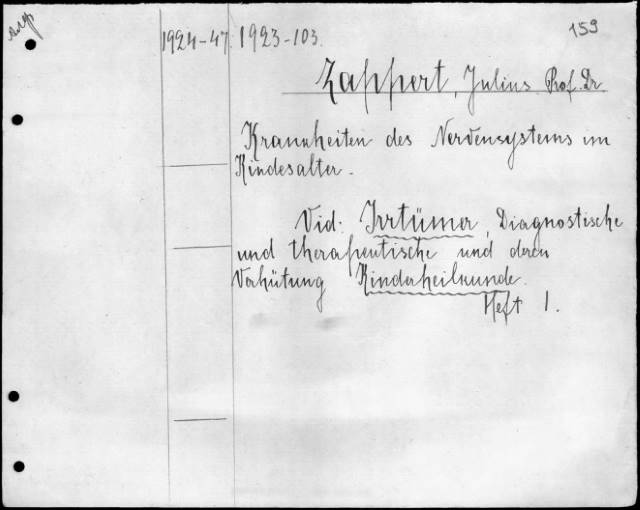 159
1924-47 1923-103
Zappert, Julius Prof. Dr
Krankheiten des Nervensystems im
Kindesalter.
Vid. Irrtümer, Diagnostische
und therapeutische und deren
Verhütung Kinderheilkunde.
Heft 1.